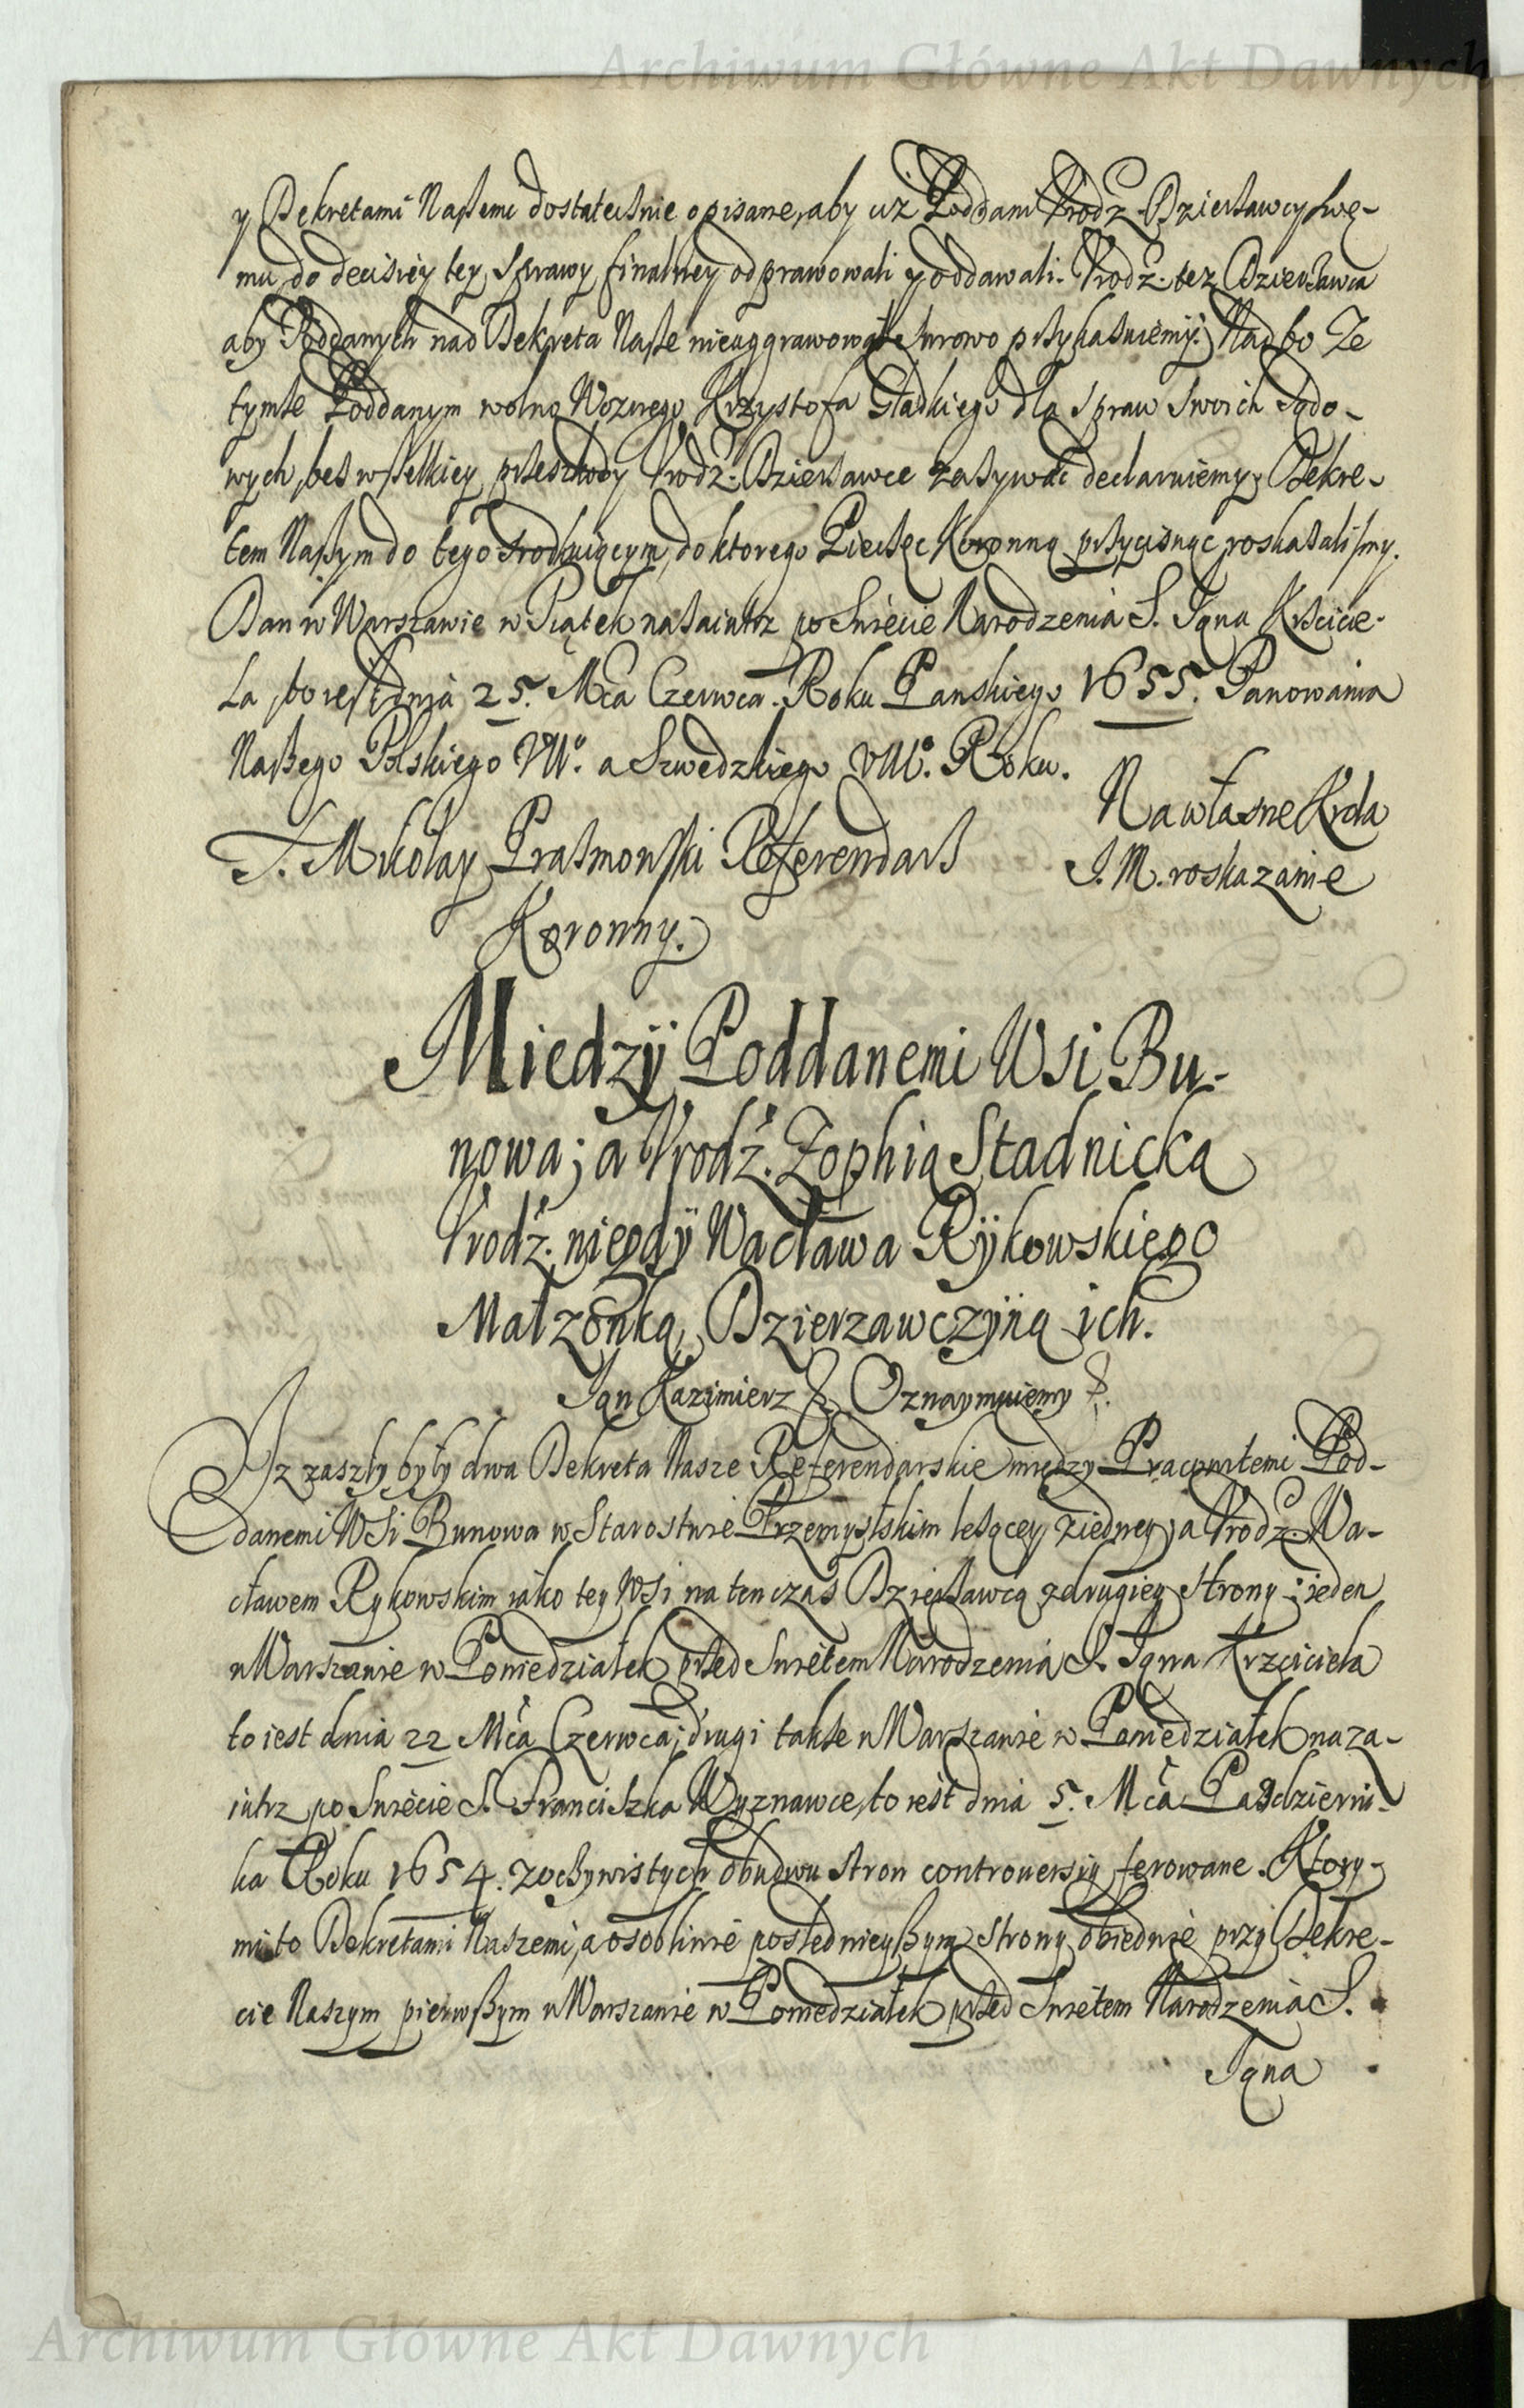 Archiwum Główne Akt Dawnych
y Dekretami Naszemi dostatecznie opisane, aby iuż Poddani Vrodz. Dzierżawcy swe-
mu, do decisiey tey sprawy finalney odprawowali y oddawali. Vrodz. też Dzierżawca
aby Poddanych nad Dekreta Nasze nieaggrawował surowo przykazuiemy. Nadto Ze
tymże Poddanym wolno Woznego Krzysztofa Gładkiego dla spraw swoich sądo-
wych, bez wszelkiey przeszkody Vrodz. Dzierżawce zażywać declaruiemy, Dekre-
tem Naszym do tego srodkuiącym, do ktorego Pieczęć Koronną przycisnąć roskazalismy.
Dan w Warszawie w Piątek nazaiutrz po Swięcie Narodzenia S. Jana Krzcicie-
la, to iest dnia 25. Mca Czerwca. Roku Panskiego 1655. Panowania
Naszego Polskiego VII°. a Szwedzkiego VIII°. Roku.
Na własne Krola
J. M. roskazanie
X. Mikołay Prażmowski Referendarz
Koronny.
Miedzÿ Poddanemi Wsi Bu-
nowa; a Vrodź. Zophią Stadnicką
Vrodź. niegdÿ Wacława Rÿkowskiego
Małzonką, Dzierzawczÿną ich.
Jan Kazimierz & Oznaymuiemy &.
Iz zaszły były dwa Dekreta Nasze Referendarskie między Pracowitemi Pod-
danemi Wsi Bunowa w Starostwie Przemyślskim leżącey, z iedney; a Vrodz. Wa-
cławem Rykowskim iako tey Wsi na ten czas Dzierżawcą z drugiey strony: ieden
w Warszawie w Poniedziałek przed Swiętem Narodzenia S. Jana Krzciciela
to iest dnia 22 Mca Czerwca; drugi także w Warszawie w Poniedziałek naza-
iutrz po Swięcie S. Franciszka Wyznawce, to iest dnia 5. Mca Pazdzierni-
ka Roku 1654. z oczywistych obudwu stron controuersiy ferowane. Ktory-
mi to Dekretami Naszemi, a osobliwie poslednieyszym strony obiedwie przy Dekre-
cie Naszym pierwszym w Warszawie w Poniedziałek przed Swiętem Narodzenia S.
Jana
Archiwum Główne Akt Dawnych